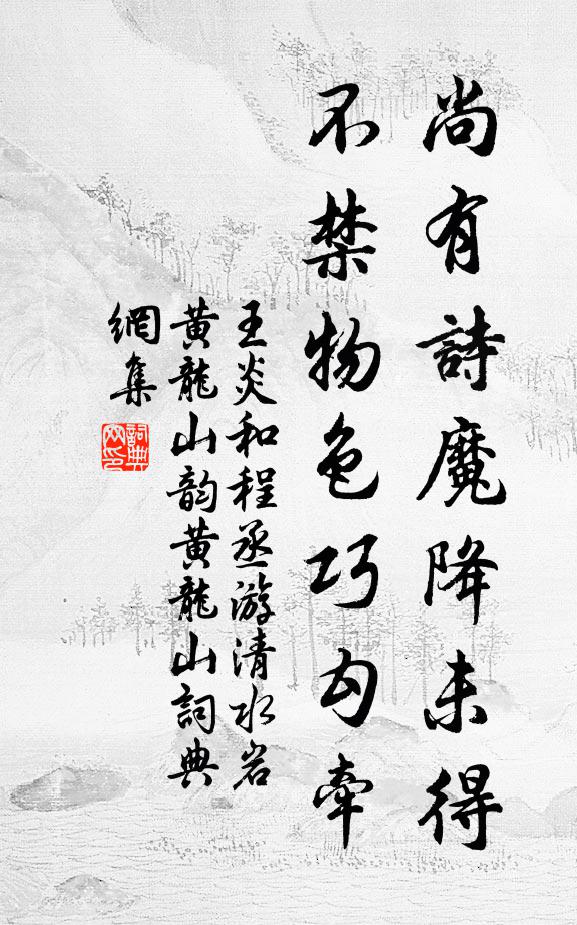 尚有詩魔降未得
不禁物色巧勾牽
王炎和程丞游清水岩
黄龍山韵黄龍山詞典
網集
詞典
网印